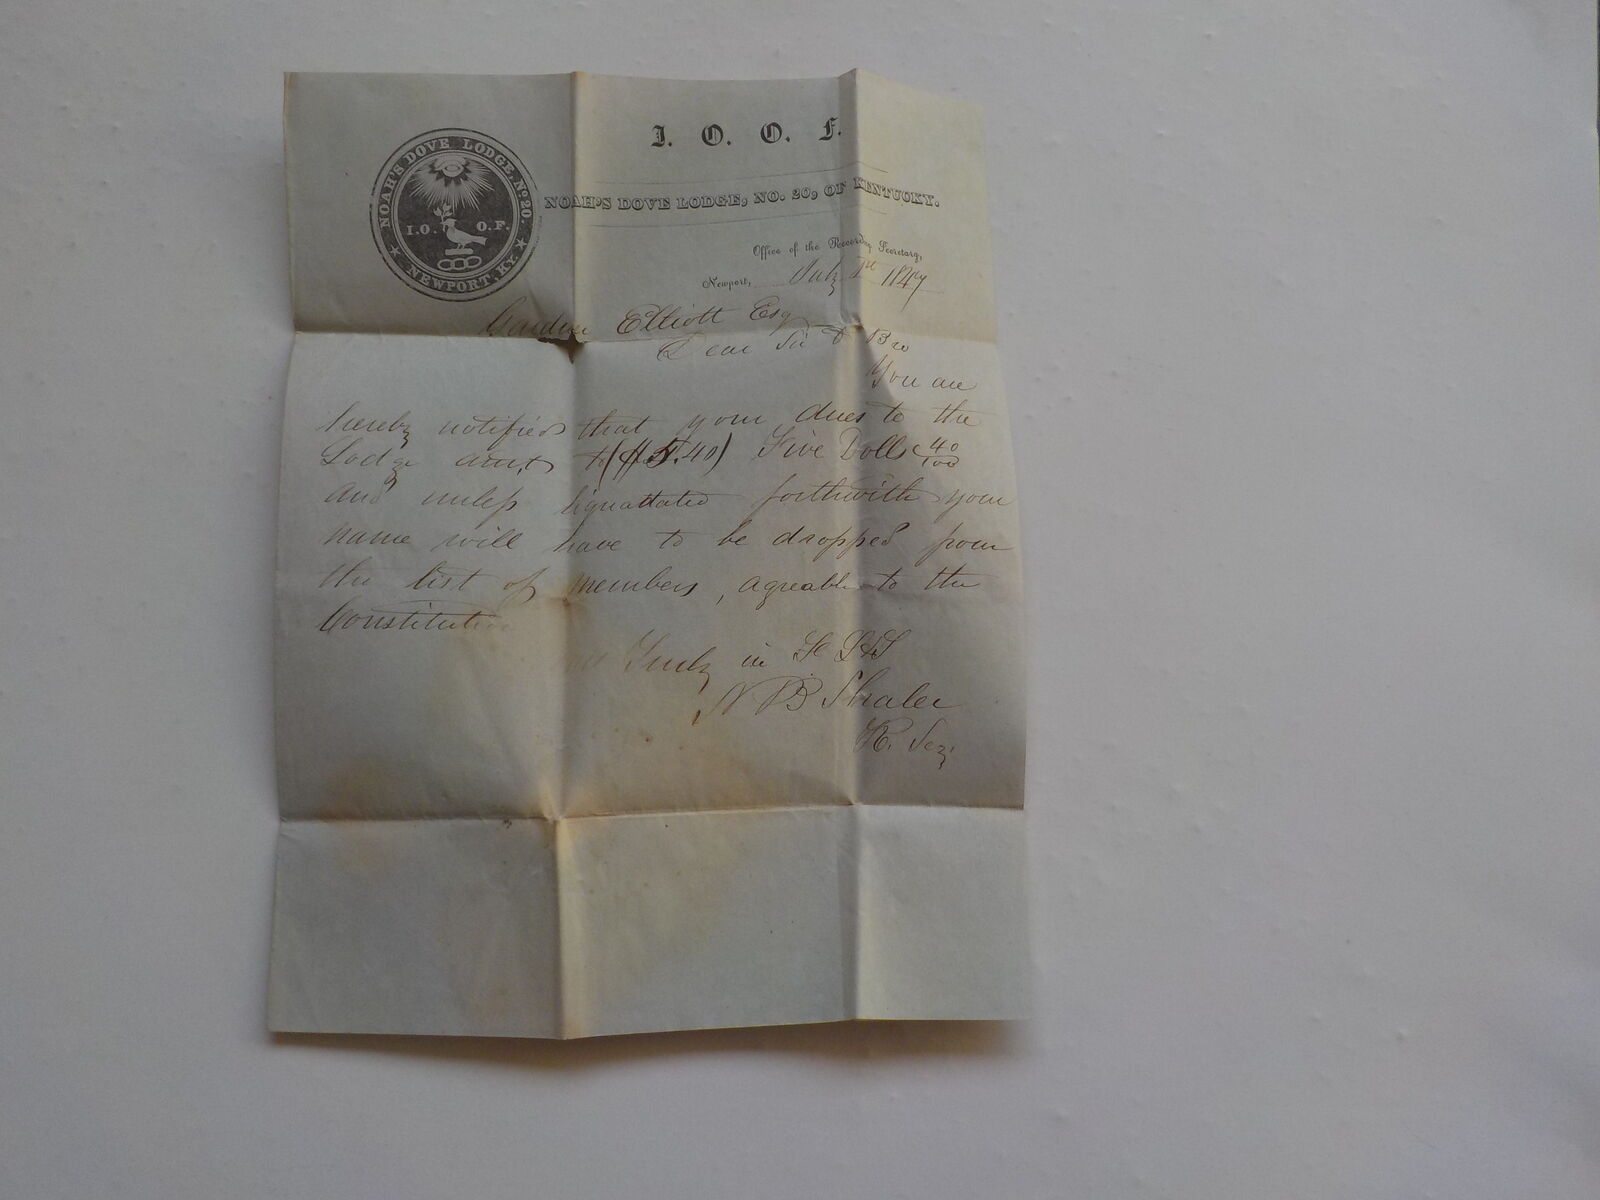 NOAH'S DOVE LODGE, No. 20.
I.O. O.F.
NEWPORT, KY.
I. O. O. F.
NOAH'S DOVE LODGE, NO. 20, OF KENTUCKY.
Office of the Recording Secretary,
Newport, July 1st 1847
Gardner Elliott Esq
Dear Sir & Bro
You are
hereby notified that your dues to the
Lodge amt to ($5.40) Five Dolls 40/100
and unless liquattated forthwith your
name will have to be dropped from
the list of members, agreable to the
Constitution
Truly in F L & T
N B Shaler
R. Secy